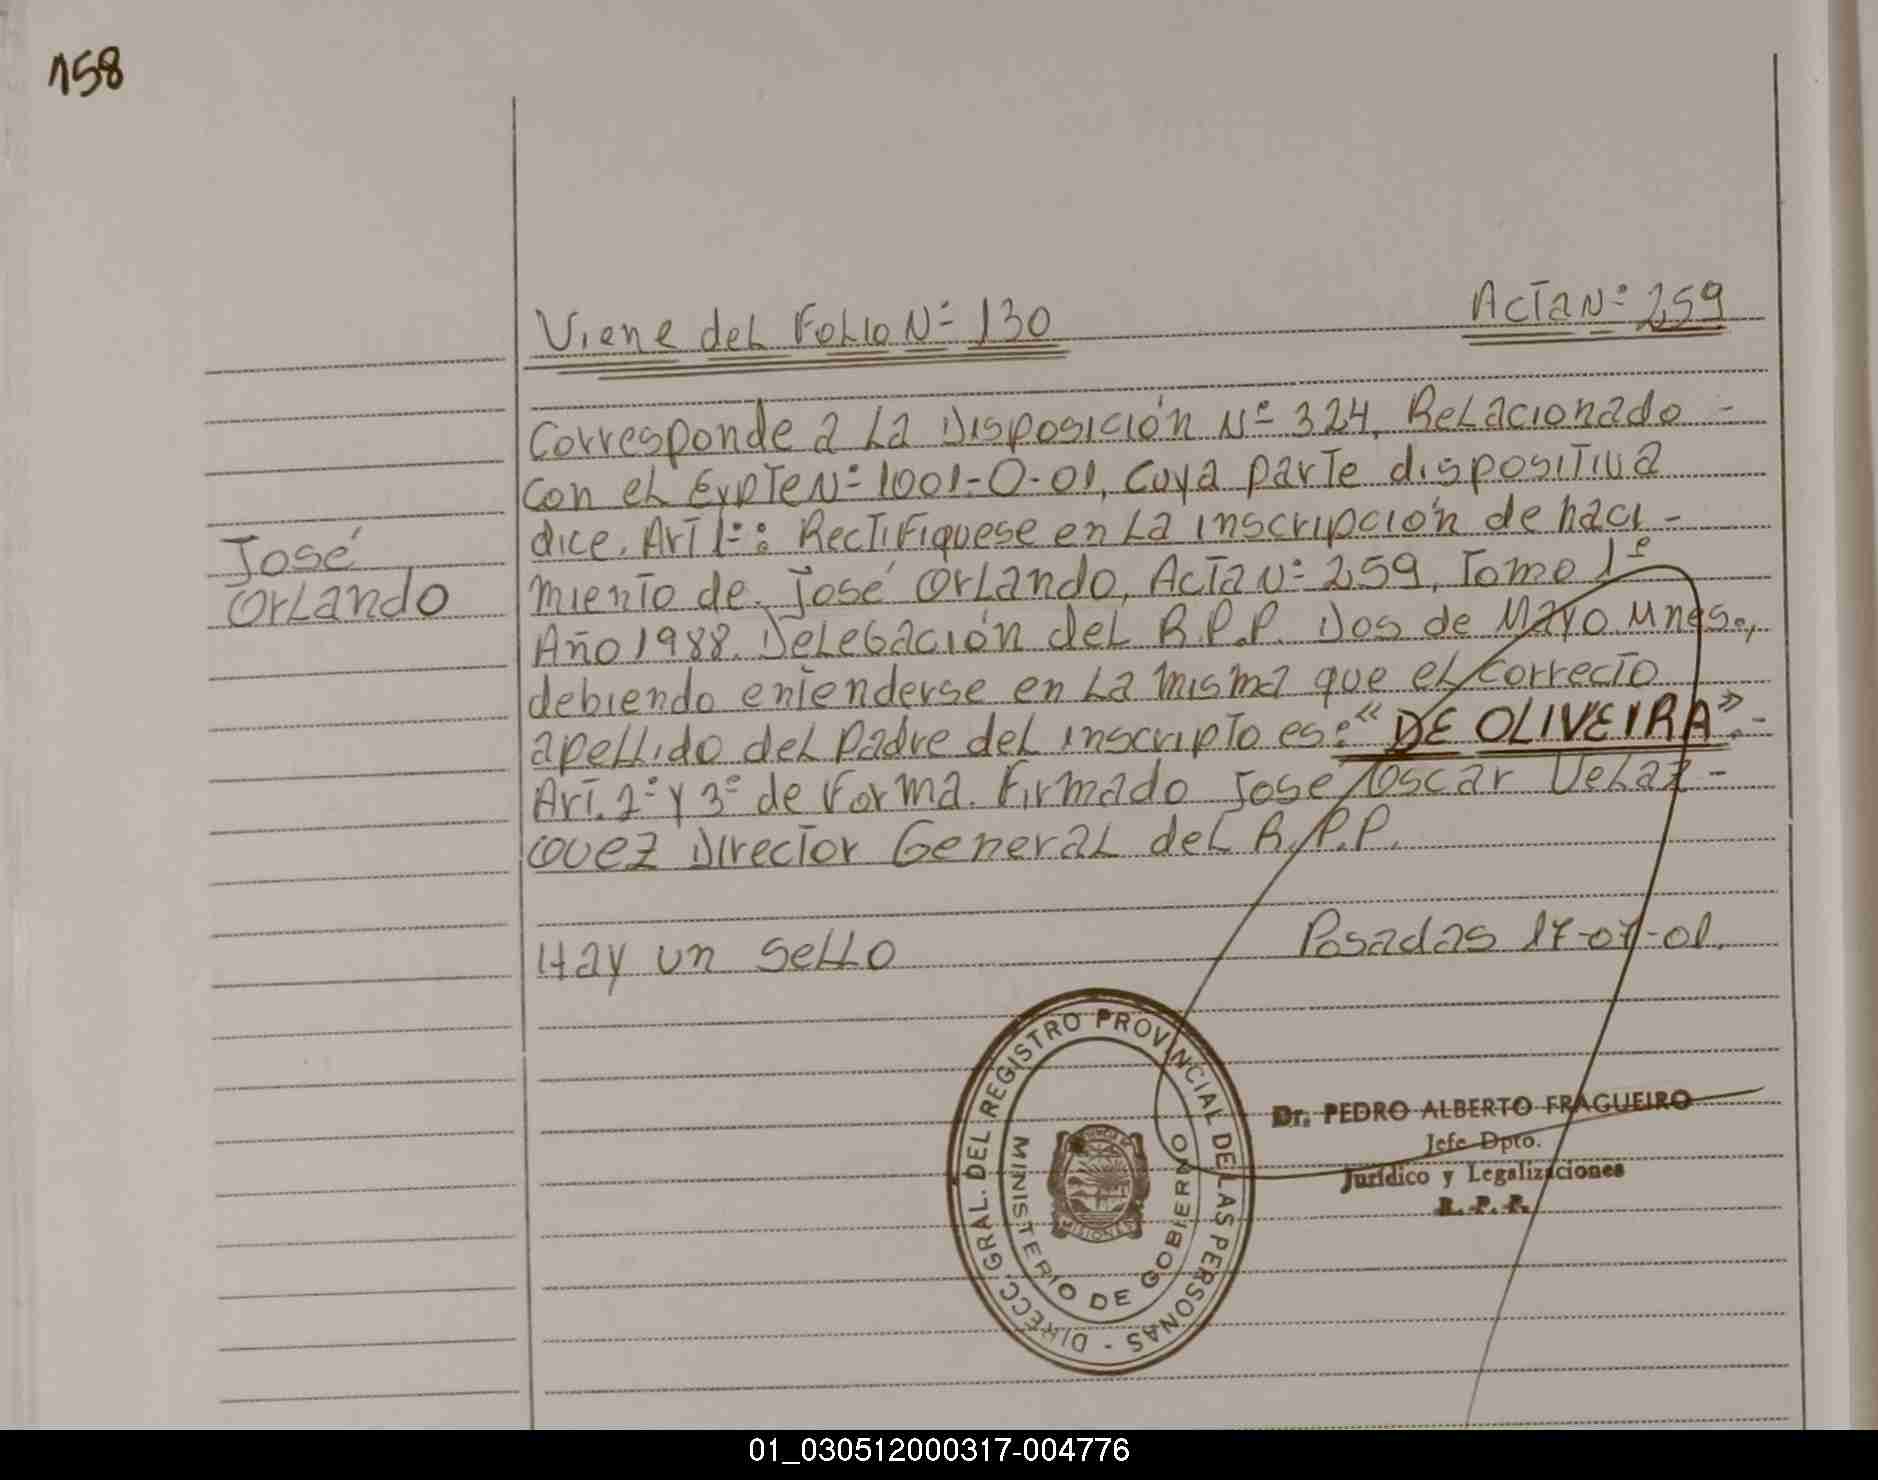 158
Viene del Folio Nº 130
Acta Nº 259
José
Orlando
Corresponde a la Disposición Nº 324, Relacionado -
con el Expte Nº 1001-O-01, cuya parte dispositiva
dice, Art 1º: Rectifiquese en la inscripción de naci -
miento de, José Orlando, Acta Nº 259, Tomo 1º
Año 1988. Delegación del R.P.P. Dos de Mayo Mnes.,
debiendo entenderse en la misma que el correcto
apellido del padre del inscripto es: "DE OLIVEIRA". -
Art. 2º y 3º de Forma. Firmado José Oscar Velaz -
quez Director General del R.P.P.
Hay un sello
Posadas 17-07-01.
DIRECC. GRAL. DEL REGISTRO PROVINCIAL DE LAS PERSONAS -
MINISTERIO DE GOBIERNO
MISIONES
Dr. PEDRO ALBERTO FRAGUEIRO
Jefe Dpto.
Jurídico y Legalizaciones
R. P. P.
01_030512000317-004776